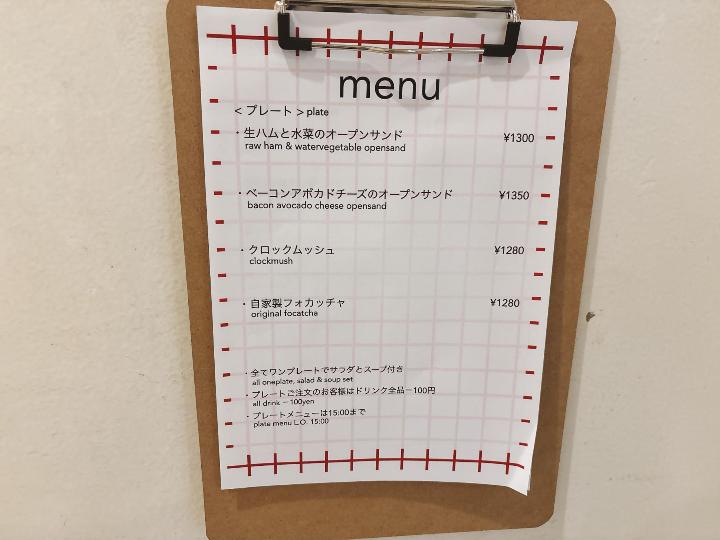 menu
< プレート > plate
・生ハムと水菜のオープンサンド ¥1300
raw ham & watervegetable opensand
・ベーコンアボカドチーズのオープンサンド ¥1350
bacon avocado cheese opensand
・クロックムッシュ ¥1280
clockmush
・自家製フォカッチャ ¥1280
original focatcha
・全てワンプレートでサラダとスープ付き
all oneplate, salad & soup set
・プレートご注文のお客様はドリンク全品－100円
all drink － 100yen
・プレートメニューは15:00まで
plate menu L.O. 15:00